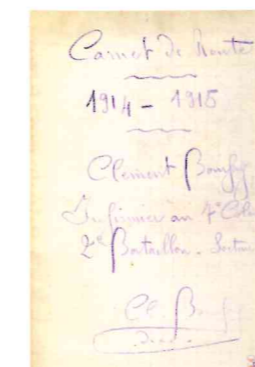 Carnet de Route
1914 - 1915
Clément
Infirmier au 4e Col
2e Bataillon. Secteur
Cl.